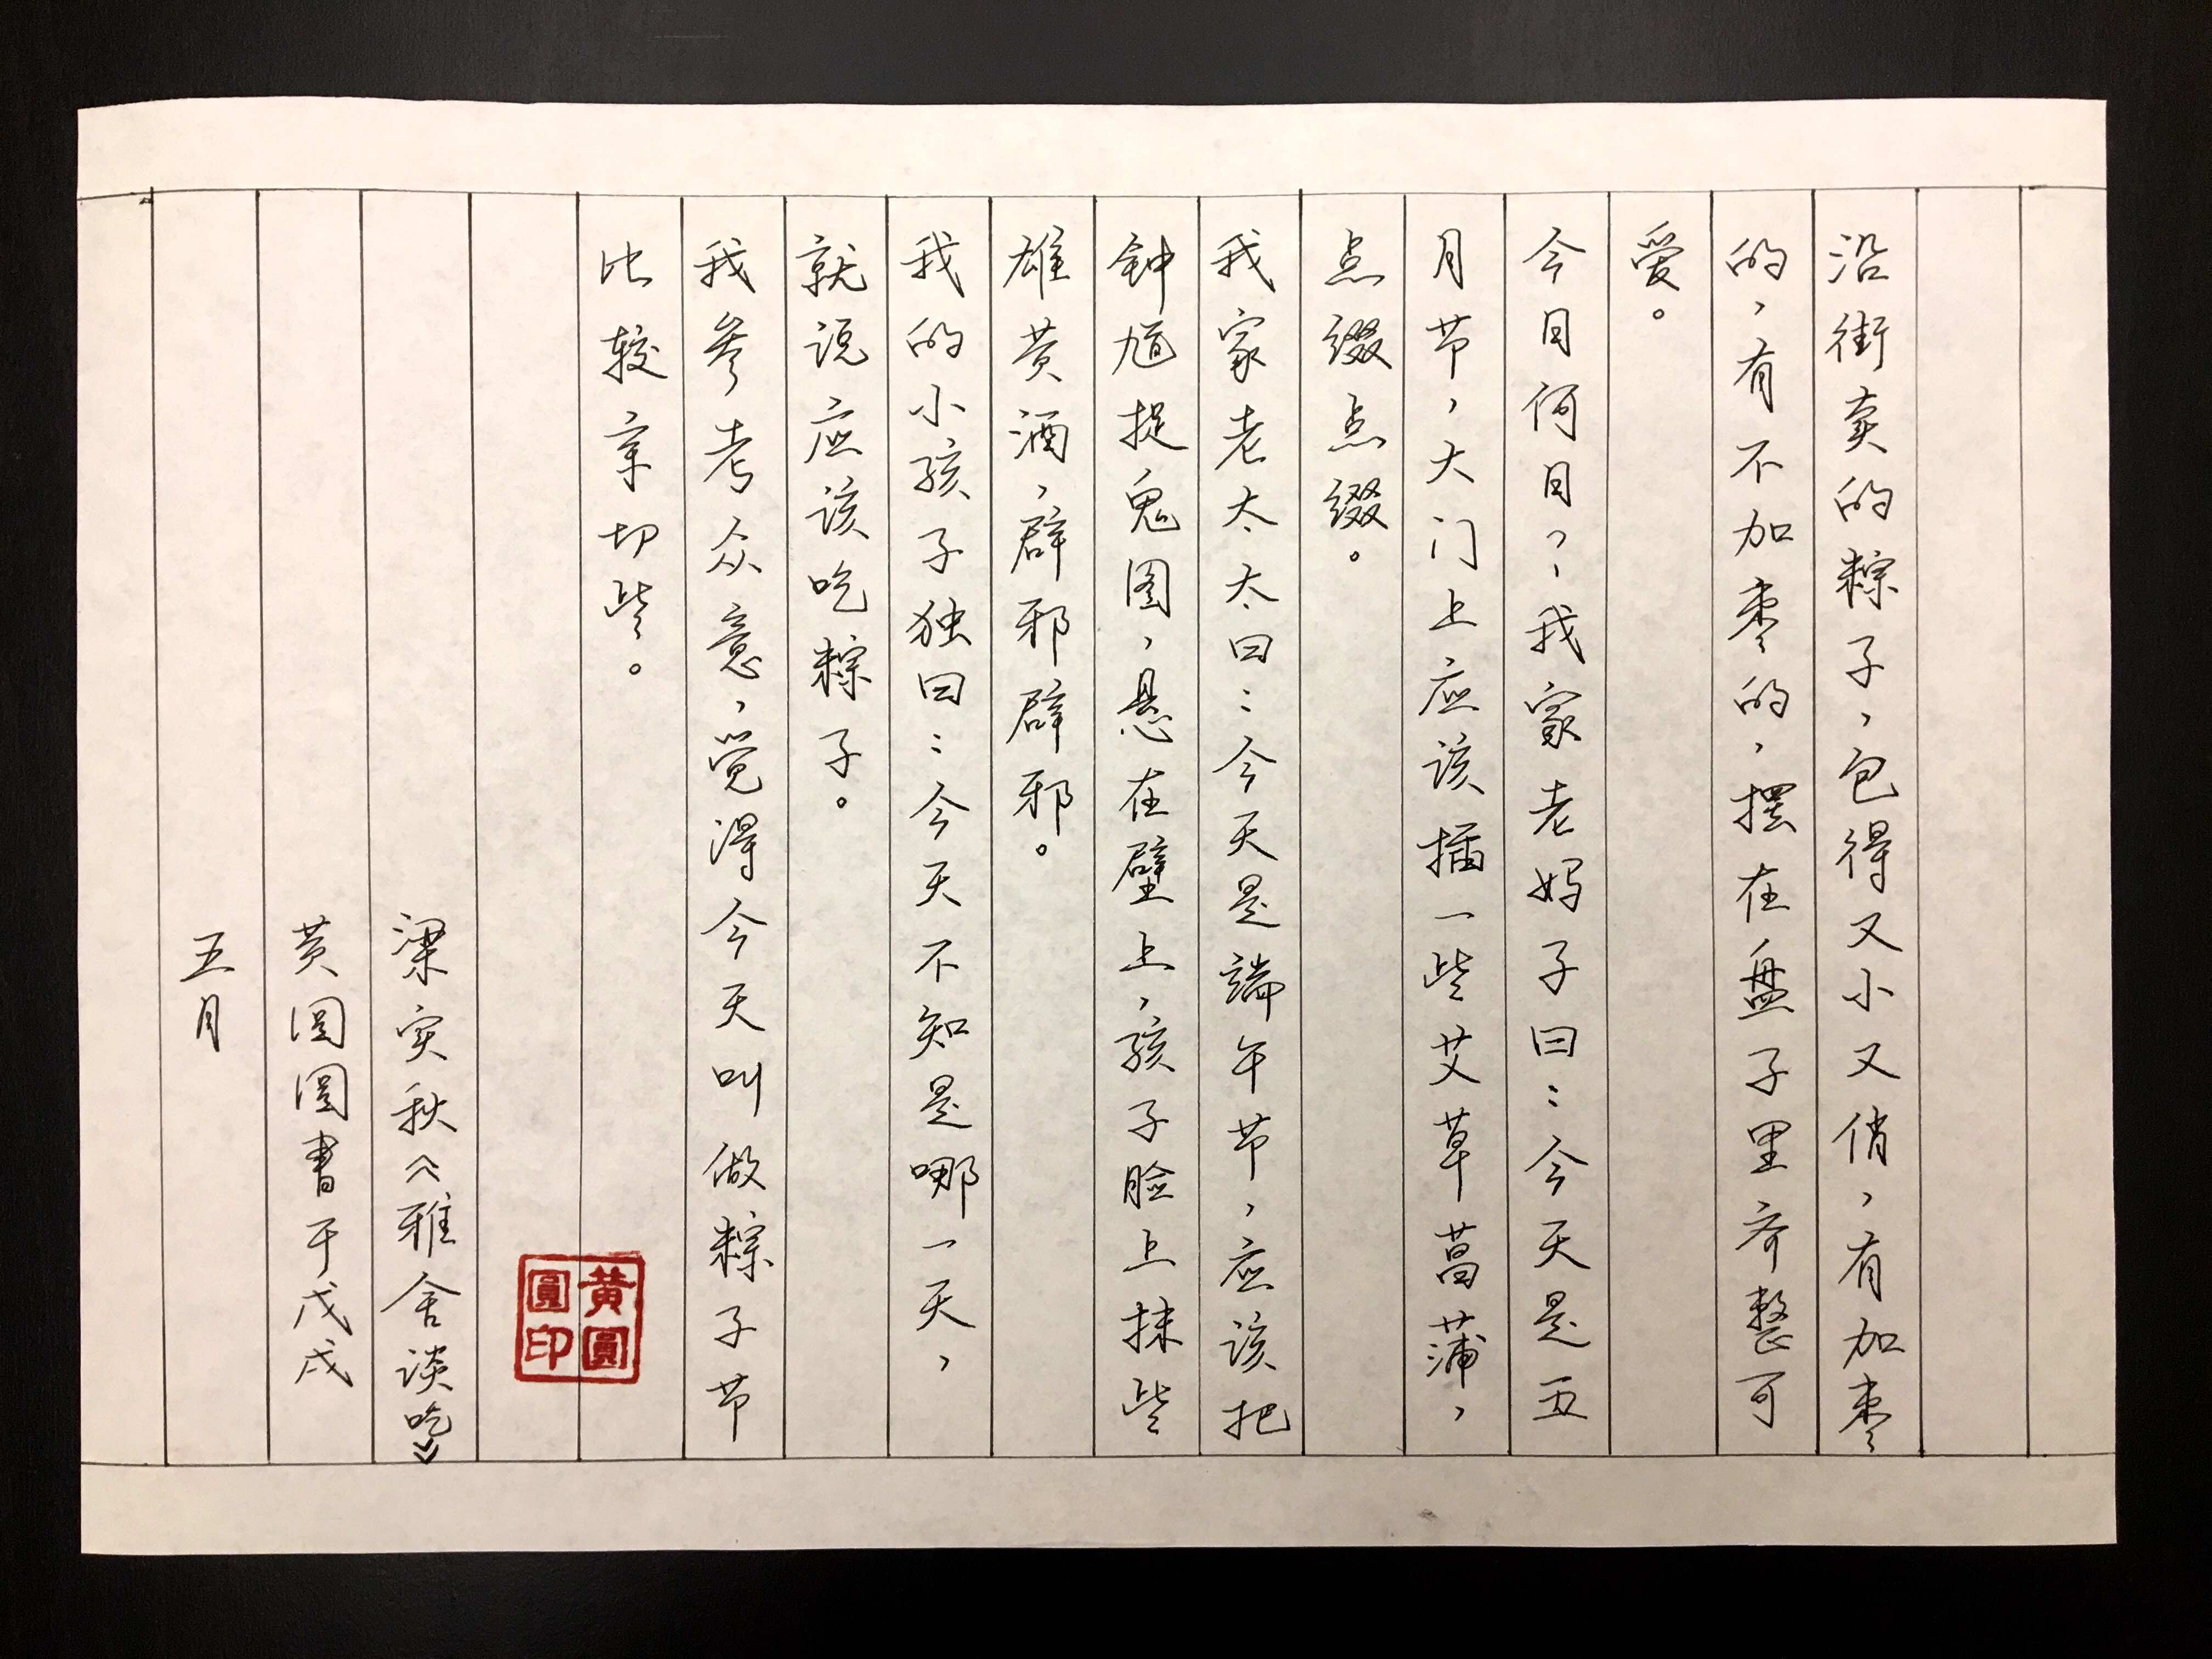 沿街卖的粽子，包得又小又俏，有加枣
的，有不加枣的，摆在盘子里齐整可
爱。
今日何日？我家老妈子曰：今天是五
月节，大门上应该插一些艾草菖蒲，
点缀点缀。
我家老太太曰：今天是端午节，应该把
钟馗捉鬼图，悬在壁上，孩子脸上抹些
雄黄酒，辟邪辟邪。
我的小孩子独曰：今天不知是哪一天，
就说应该吃粽子。
我参考众意，觉得今天叫做粽子节
比较亲切些。
梁实秋《雅舍谈吃》
黄圆圆書于戊戌
五月
黄圓圓印